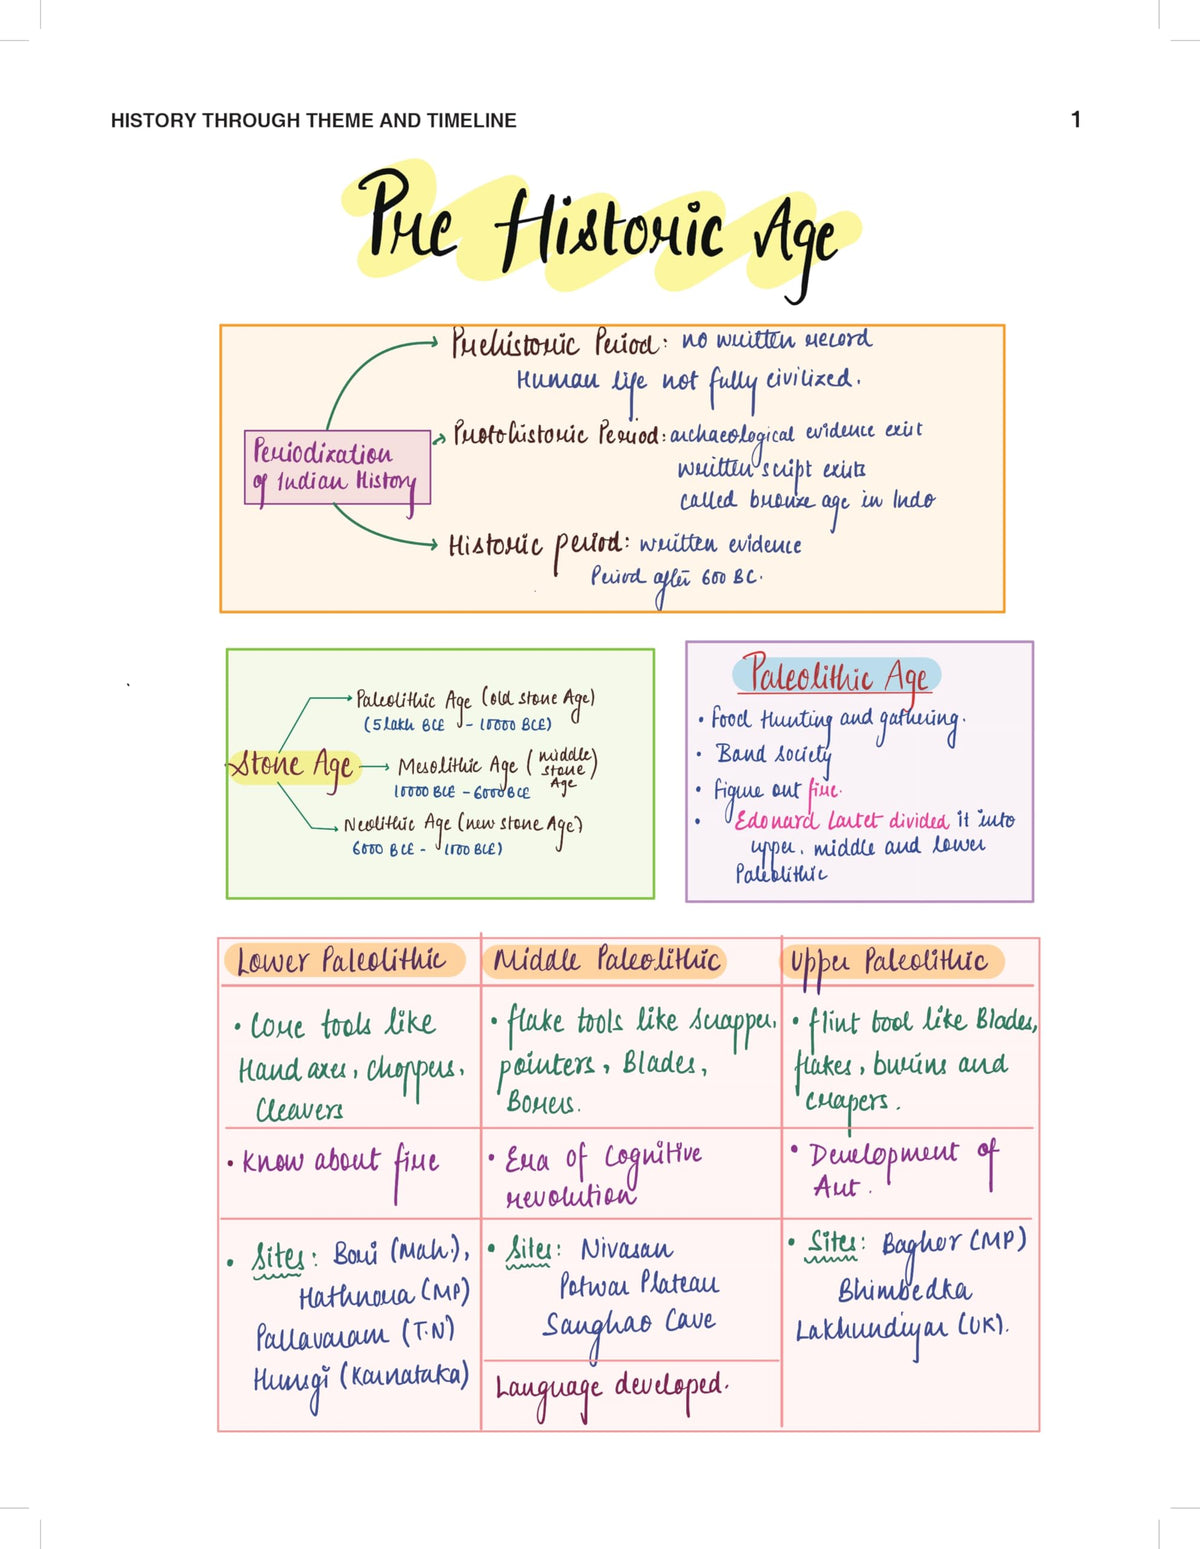 HISTORY THROUGH THEME AND TIMELINE 1
Pre Historic Age
Prehistoric Period: no written record
Human life not fully civilized.
Periodization
of Indian History
Protohistoric Period: archaeological evidence exist
written script exists
called bronze age in Indo
Historic period: written evidence
Period after 600 BC.
Stone Age
Paleolithic Age (old stone Age)
(5 lakh BCE - 10000 BCE)
Mesolithic Age (middle
stone
Age)
10000 BCE - 6000 BCE
Neolithic Age (new stone Age)
6000 BCE - 1000 BCE)
Paleolithic Age
• Food Hunting and gathering.
• Band Society
• Figure out fire.
• Edonard Lartet divided it into
upper, middle and lower
Paleolithic
Lower Paleolithic
Middle Paleolithic
Upper Paleolithic
• Core tools like
Hand axes, choppers,
Cleavers
• flake tools like scrapper,
pointers, Blades,
Borers.
• flint tool like Blades,
flakes, burins and
crapers.
• Know about fire
• Era of Cognitive
revolution
• Development of
Art.
• Sites: Bori (Mah.),
Hathnora (MP)
Pallavaram (T.N)
Hunsgi (Karnataka)
• Sites: Nivasan
Potwar Plateau
Sanghao Cave
Language developed.
• Sites: Baghor (MP)
Bhimbedka
Lakhundiyar (UK).